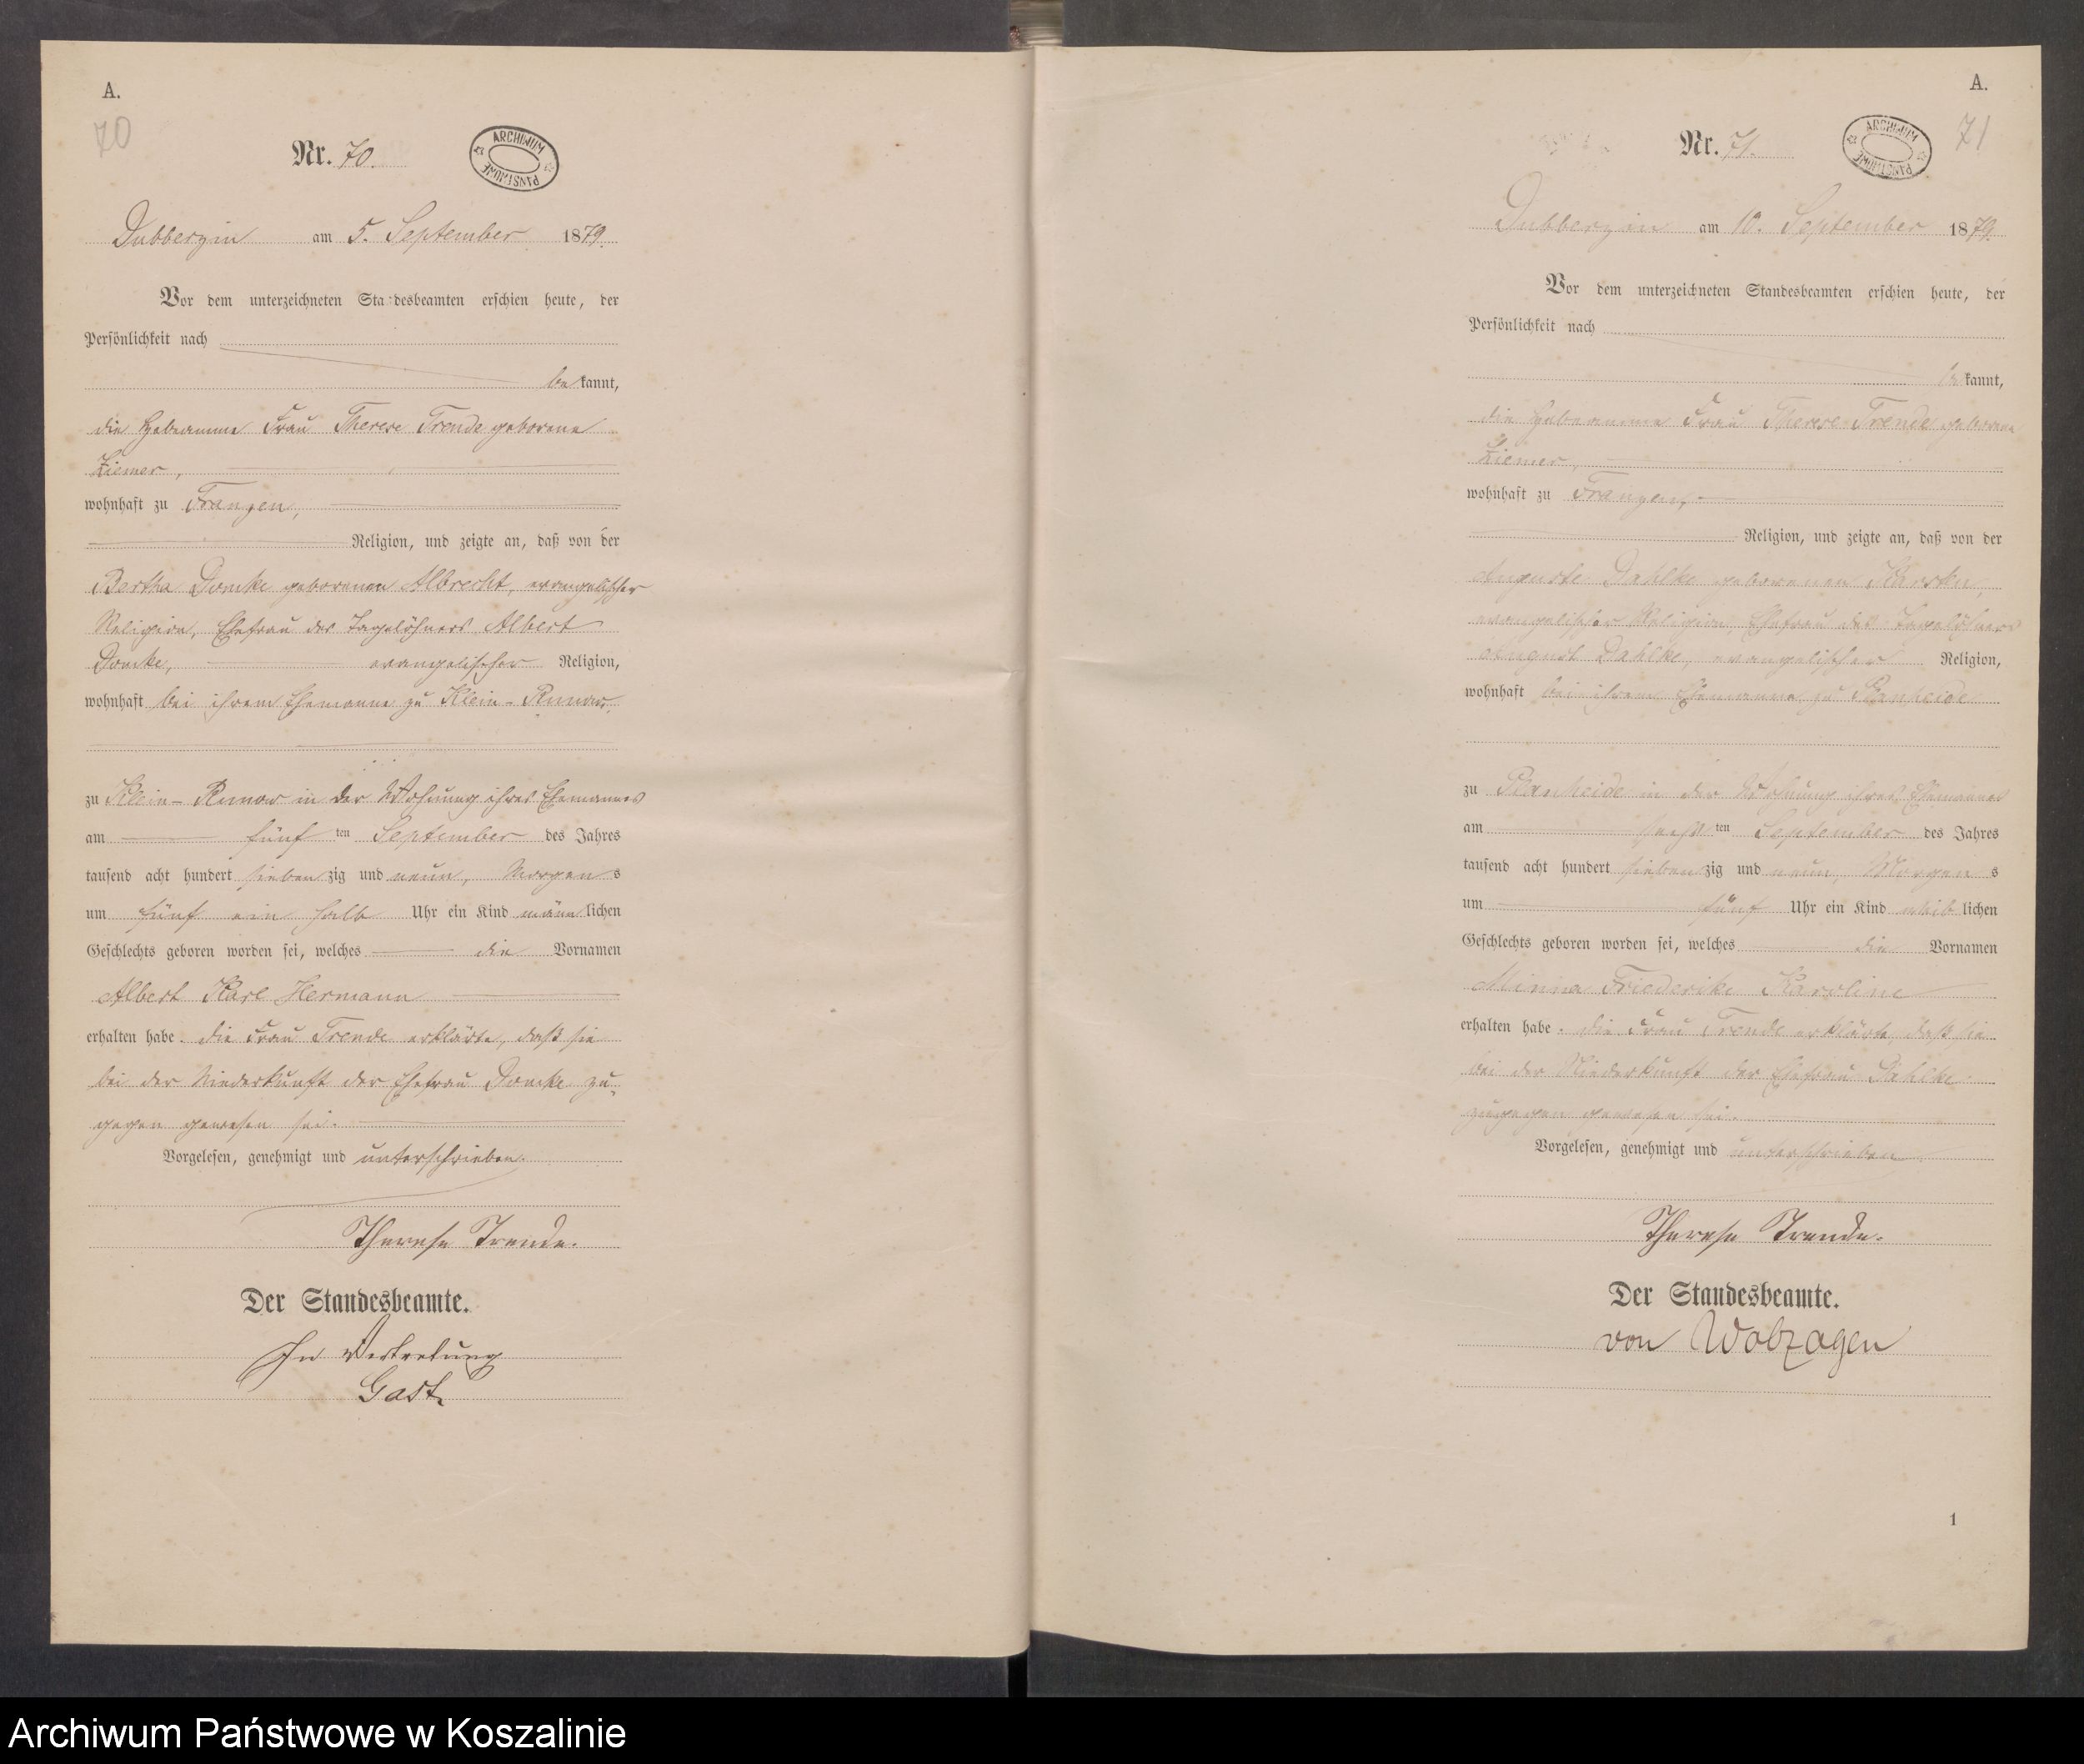 A.
70
Nr. 70.
ARCHIWUM PAŃSTWOWE
Dubberzin am 5. September 1879.
Vor dem unterzeichneten Standesbeamten erschien heute, der
Persönlichkeit nach
bekannt,
die Hebeamme Frau Therese Trende geborene
Ziemer,
wohnhaft zu Franzen,
Religion, und zeigte an, daß von der
Bertha Domke geborenen Albrecht, evangelischer
Religion, Ehefrau des Tagelöhners Albert
Domke, evangelischer Religion,
wohnhaft bei ihrem Ehemanne zu Klein-Runow,
zu Klein-Runow in der Wohnung ihres Ehemannes
am fünf ten September des Jahres
tausend acht hundert sieben zig und neun, Morgens
um fünf ein halb Uhr ein Kind männlichen
Geschlechts geboren worden sei, welches die Vornamen
Albert Karl Hermann
erhalten habe. die Frau Trende erklärte, daß sie
bei der Niederkunft der Ehefrau Domke zu-
gegen gewesen sei.
Vorgelesen, genehmigt und unterschrieben.
Therese Trende.
Der Standesbeamte.
In Vertretung
Gast.
A.
71
Nr. 71.
ARCHIWUM PAŃSTWOWE
Dubberzin am 10. September 1879.
Vor dem unterzeichneten Standesbeamten erschien heute, der
Persönlichkeit nach
bekannt,
die Hebeamme Frau Therese Trende geborene
Ziemer,
wohnhaft zu Franzen,
Religion, und zeigte an, daß von der
Auguste Dahlke geborenen
evangelischer Religion, Ehefrau des Tagelöhners
August Dahlke, evangelischer Religion,
wohnhaft bei ihrem Ehemanne zu
zu in der Wohnung ihres Ehemannes
am sechs ten September des Jahres
tausend acht hundert sieben zig und neun, Morgens
um fünf Uhr ein Kind weiblichen
Geschlechts geboren worden sei, welches die Vornamen
Minna Friederike Karoline
erhalten habe. die Frau Trende erklärte, daß sie
bei der Niederkunft der Ehefrau Dahlke
zugegen gewesen sei.
Vorgelesen, genehmigt und unterschrieben
Therese Trende.
Der Standesbeamte.
von Wolzogen
1
Archiwum Państwowe w Koszalinie